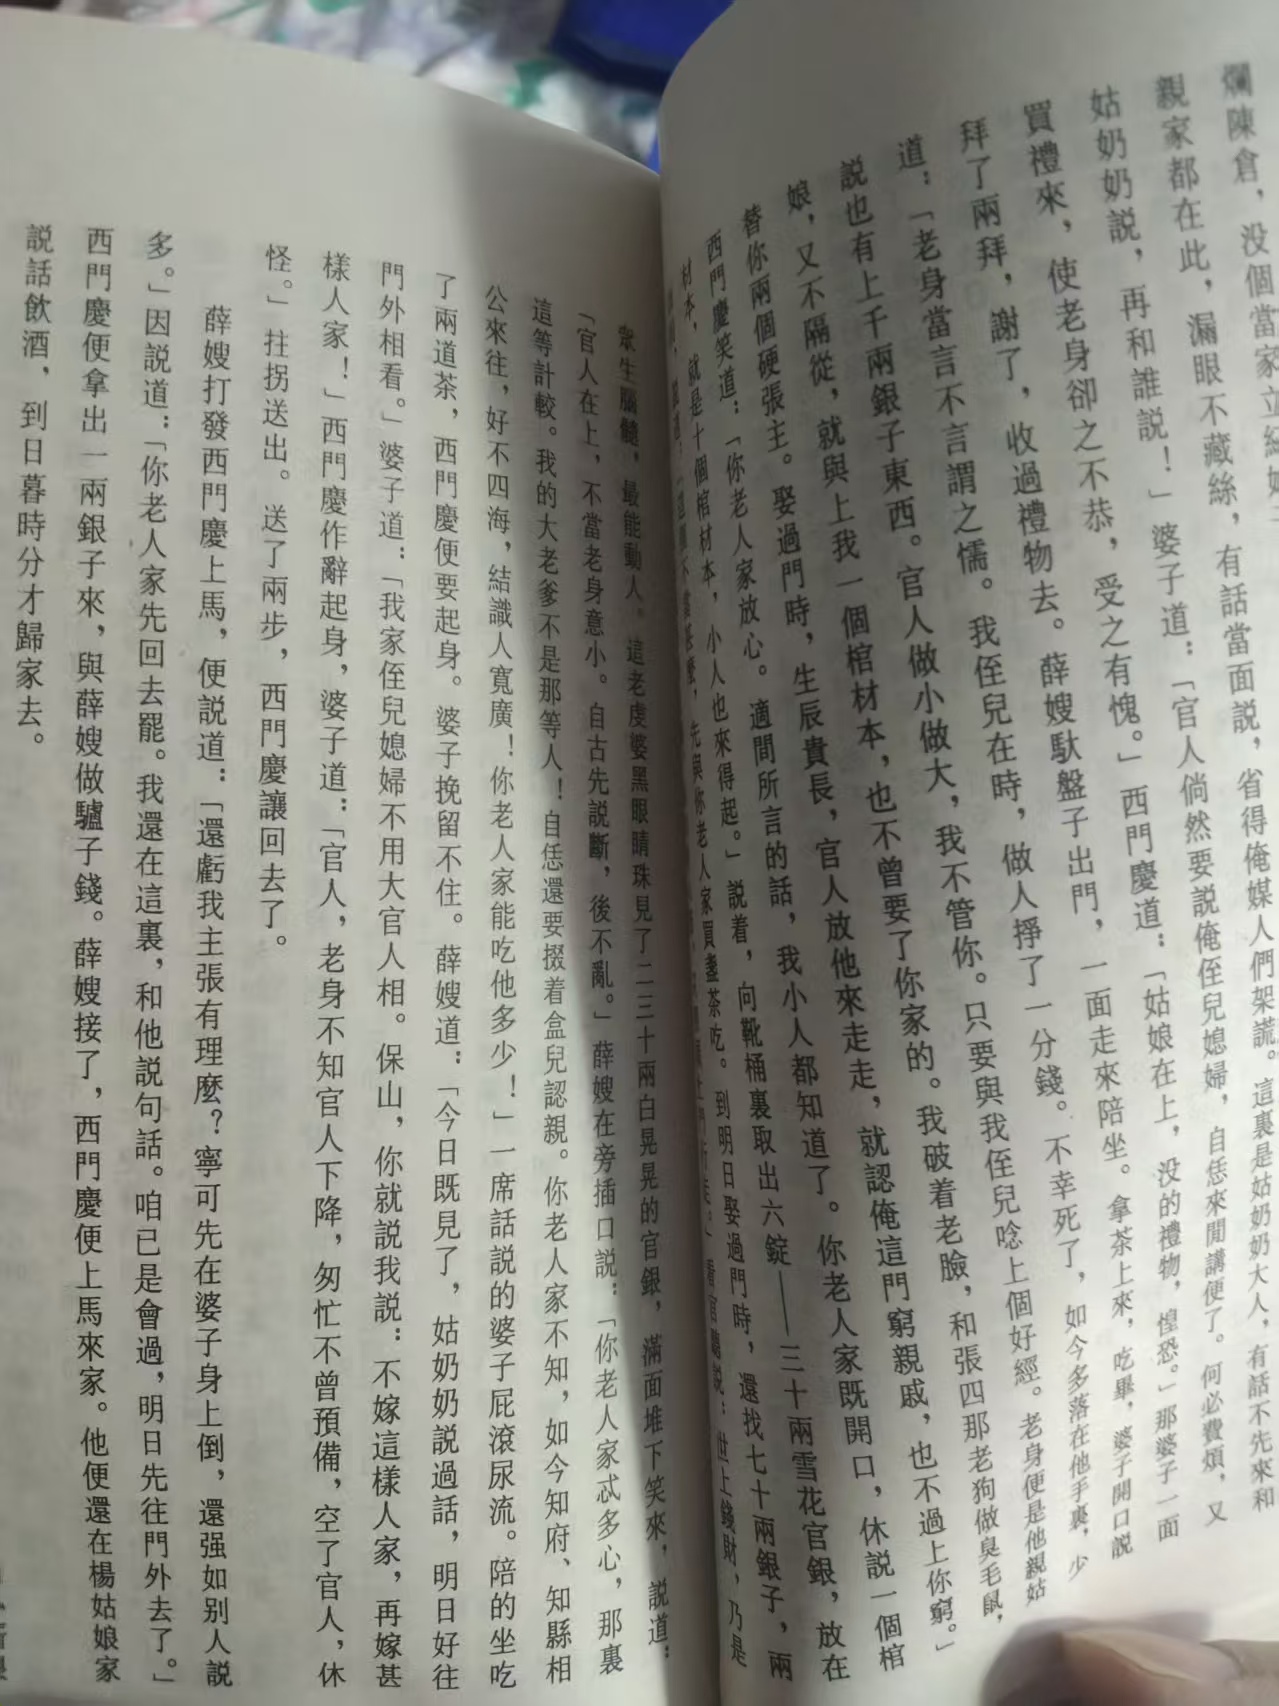 爛陳倉，没個當家立紀
親家都在此，漏眼不藏絲，有話當面說，省得俺媒人們架謊。這裏是姑奶奶大人，有話不先來和
姑奶奶說，再和誰說！」婆子道：「官人倘然要說俺侄兒媳婦，自恁來閒講便了。何必費煩，又
買禮來，使老身卻之不恭，受之有愧。」西門慶道：「姑娘在上，没的禮物，惶恐。」那婆子一面
拜了兩拜，謝了，收過禮物去。薛嫂馱盤子出門，一面走來陪坐。拿茶上來，吃畢，婆子開口說
道：「老身當言不言謂之懦。我侄兒在時，做人掙了一分錢。不幸死了，如今多落在他手裏，少
説也有上千兩銀子東西。官人做小做大，我不管你。只要與我侄兒唸上個好經。老身便是他親姑
娘，又不隔從，就與上我一個棺材本，也不曾要了你家的。我破着老臉，和張四那老狗做臭毛鼠，
替你兩個硬張主。娶過門時，生辰貴長，官人放他來走走，就認俺這門窮親戚，也不過上你窮。」
西門慶笑道：「你老人家放心。適間所言的話，我小人都知道了。你老人家既開口，休説一個棺
材本，就是十個棺材本，小人也來得起。」説着，向靴桶裏取出六錠——三十兩雪花官銀，放在
先與你老人家買盞茶吃。到明日娶過門時，還找七十兩銀子，兩
看官聽説：世上錢財，乃是
衆生腦髓，最能動人。這老虔婆黑眼睛珠見了二三十兩白晃晃的官銀，滿面堆下笑來，説道：
「官人在上，不當老身意小。自古先説斷，後不亂。」薛嫂在旁插口説：「你老人家忒多心，那裏
這等計較。我的大老爹不是那等人！自恁還要掇着盒兒認親。你老人家不知，如今知府、知縣相
公來往，好不四海，結識人寬廣！你老人家能吃他多少！」一席話説的婆子屁滾尿流。陪的坐吃
了兩道茶，西門慶便要起身。婆子挽留不住。薛嫂道：「今日既見了，姑奶奶說過話，明日好往
門外相看。」婆子道：「我家侄兒媳婦不用大官人相。保山，你就説我説：不嫁這樣人家，再嫁甚
樣人家！」西門慶作辭起身，婆子道：「官人，老身不知官人下降，匆忙不曾預備，空了官人，休
怪。」拄拐送出。送了兩步，西門慶讓回去了。
薛嫂打發西門慶上馬，便説道：「還虧我主張有理麽？寧可先在婆子身上倒，還强如别人説
多。」因説道：「你老人家先回去罷。我還在這裏，和他説句話。咱已是會過，明日先往門外去了。」
西門慶便拿出一兩銀子來，與薛嫂做驢子錢。薛嫂接了，西門慶便上馬來家。他便還在楊姑娘家
説話飲酒，到日暮時分才歸家去。